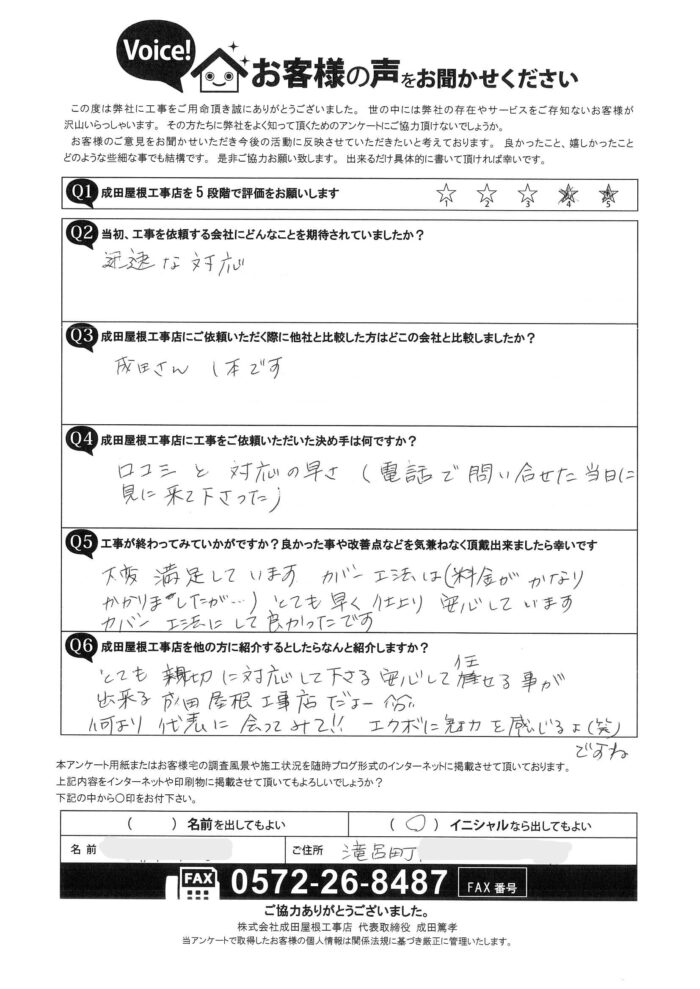 Voice!
お客様の声をお聞かせください
この度は弊社に工事をご用命頂き誠にありがとうございました。 世の中には弊社の存在やサービスをご存知ないお客様が
沢山いらっしゃいます。 その方たちに弊社をよく知って頂くためのアンケートにご協力頂けないでしょうか。
お客様のご意見をお聞かせいただき今後の活動に反映させていただきたいと考えております。 良かったこと、嬉しかったこと
どのような些細な事でも結構です。 是非ご協力お願い致します。 出来るだけ具体的に書いて頂ければ幸いです。
Q1 成田屋根工事店を5段階で評価をお願いします
1 2 3 4 5
Q2 当初、工事を依頼する会社にどんなことを期待されていましたか？
迅速な対応
Q3 成田屋根工事店にご依頼いただく際に他社と比較した方はどこの会社と比較しましたか？
成田さん 1本です
Q4 成田屋根工事店に工事をご依頼いただいた決め手は何ですか？
口コミと対応の早さ（電話で問い合せた当日に
見に来て下さった）
Q5 工事が終わってみていかがですか？良かった事や改善点などを気兼ねなく頂戴出来ましたら幸いです
大変満足しています カバー工法は（料金がかなり
かかりましたが…）とても早く仕上り安心しています
カバー工法にして良かったです
Q6 成田屋根工事店を他の方に紹介するとしたらなんと紹介しますか？
とても親切に対応して下さる安心して任せる事が
出来る成田屋根工事店だよー
何より代表に会ってみて!! エクボに魅力を感じるよ（笑）
ですね
本アンケート用紙またはお客様宅の調査風景や施工状況を随時ブログ形式のインターネットに掲載させて頂いております。
上記内容をインターネットや印刷物に掲載させて頂いてもよろしいでしょうか？
下記の中から○印をお付下さい。
（　）名前を出してもよい （○）イニシャルなら出してもよい
名前 ご住所 滝呂町
FAX 0572-26-8487 FAX番号
ご協力ありがとうございました。
株式会社成田屋根工事店 代表取締役 成田篤孝
当アンケートで取得したお客様の個人情報は関係法規に基づき厳正に管理いたします。